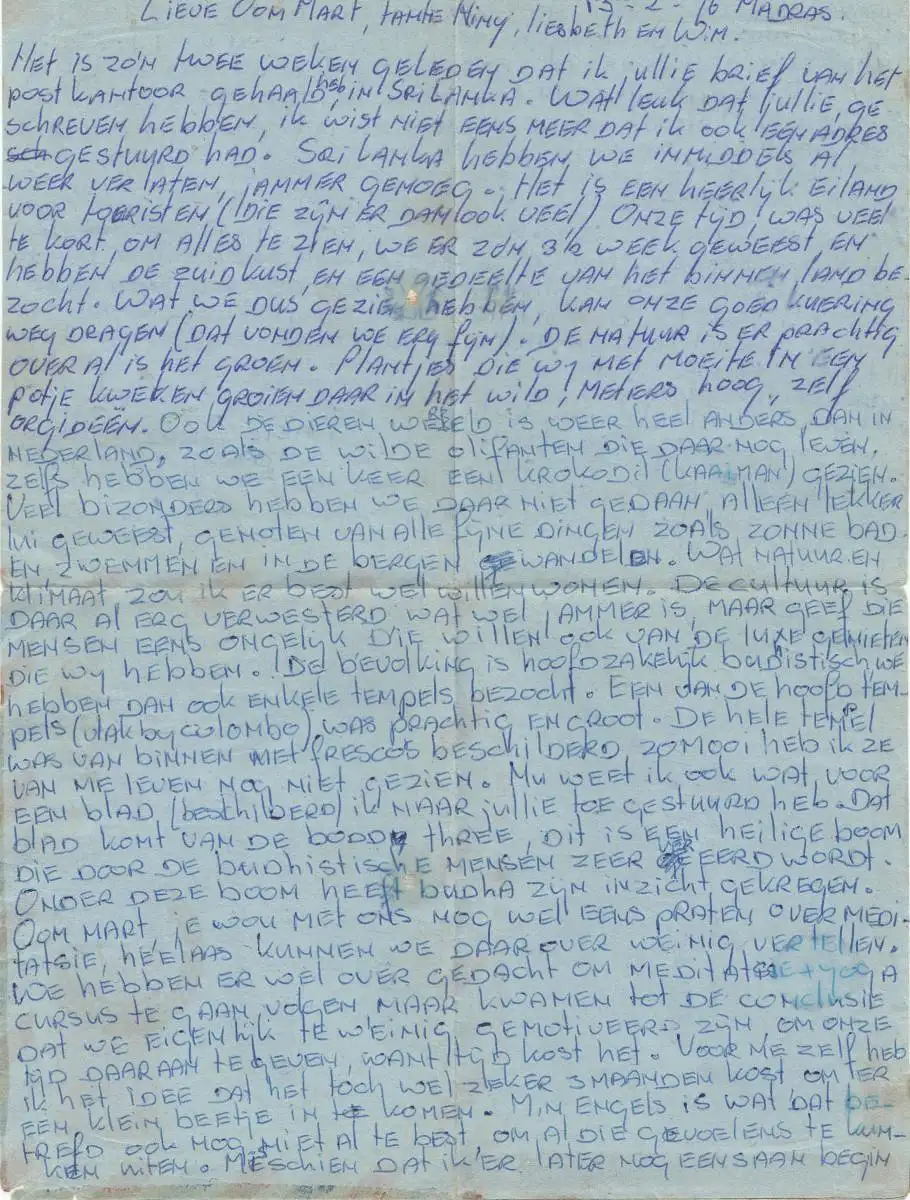 Lieve Oom Mart, tante Miny, liesbeth en Wim.
13-2-76 Madras.
Het is zo'n twee weken geleden dat ik jullie brief van het
postkantoor gehaald heb, in Sri Lanka. Wat leuk dat jullie, ge
schreven hebben, ik wist niet eens meer dat ik ook een adres
gestuurd had. Sri Lanka hebben, we inmiddels al
weer verlaten, jammer genoeg. Het is een heerlijk eiland
voor toeristen (die zijn er dan ook veel) Onze tijd, was veel
te kort, om alles te zien, we er zo'n 3½ week geweest, en
hebben de zuidkust, en een gedeelte van het binnenland be-
zocht. Wat we dus gezien hebben, kan onze goedkuering
weg dragen (dat vonden we erg fijn). De natuur is er prachtig
overal is het groen. Plantjes die wy met moeite in een
potje kweken groien daar in het wild, meters hoog, zelf
orgideën. Ook de dieren wereld is weer heel anders dan in
Nederland, zoals de wilde olifanten die daar nog leven.
zelfs hebben we een keer een krokodil (kaaiman) gezien.
Veel bizonders hebben we daar niet gedaan alleen lekker
lui geweest, genoten van alle fijne dingen zoals zonne bad
en zwemmen en in de bergen wandelen. Wat natuur en
klimaat zou ik er best wel willen wonen. De cultuur is
daar al erg verwesterd wat wel jammer is, maar geef die
mensen eens ongelijk die willen ook van de luxe genieten
die wy hebben. De bevolking is hoofdzakelijk budistisch, we
hebben dan ook enkele tempels bezocht. Een van de hoofd tem-
pels (vlak by Colombo) was prachtig en groot. De hele tempel
was van binnen met frescos beschilderd, zo mooi heb ik ze
van me leven nog niet gezien. Nu weet ik ook wat voor
een blad (beschilderd) ik maar jullie toe gestuurd heb. Dat
blad komt van de boddy three, dit is een heilige boom
die door de budhistische mensen zeer vereerd wordt.
Onder deze boom heeft budha zijn inzicht gekregen.
Oom Mart, je wou met ons nog wel eens praten over medi-
tatsie, heelaas kunnen we daar over weinig vertellen.
We hebben er wel over gedacht om meditatie + yoga
cursus te gaan volgen maar kwamen tot de conclusie
dat we eigenlijk te weinig gemotiveerd zijn, om onze
tijd daaraan te geven, want tijd kost het. Voor me zelf heb
ik het idee dat het toch wel zeker 3 maanden kost om er
een klein beetje in te komen. Mijn Engels is wat dat be-
trefd ook nog niet al te best, om al die gevoelens te kun-
nen uiten. Meschien dat ik er later nog eens aan begin